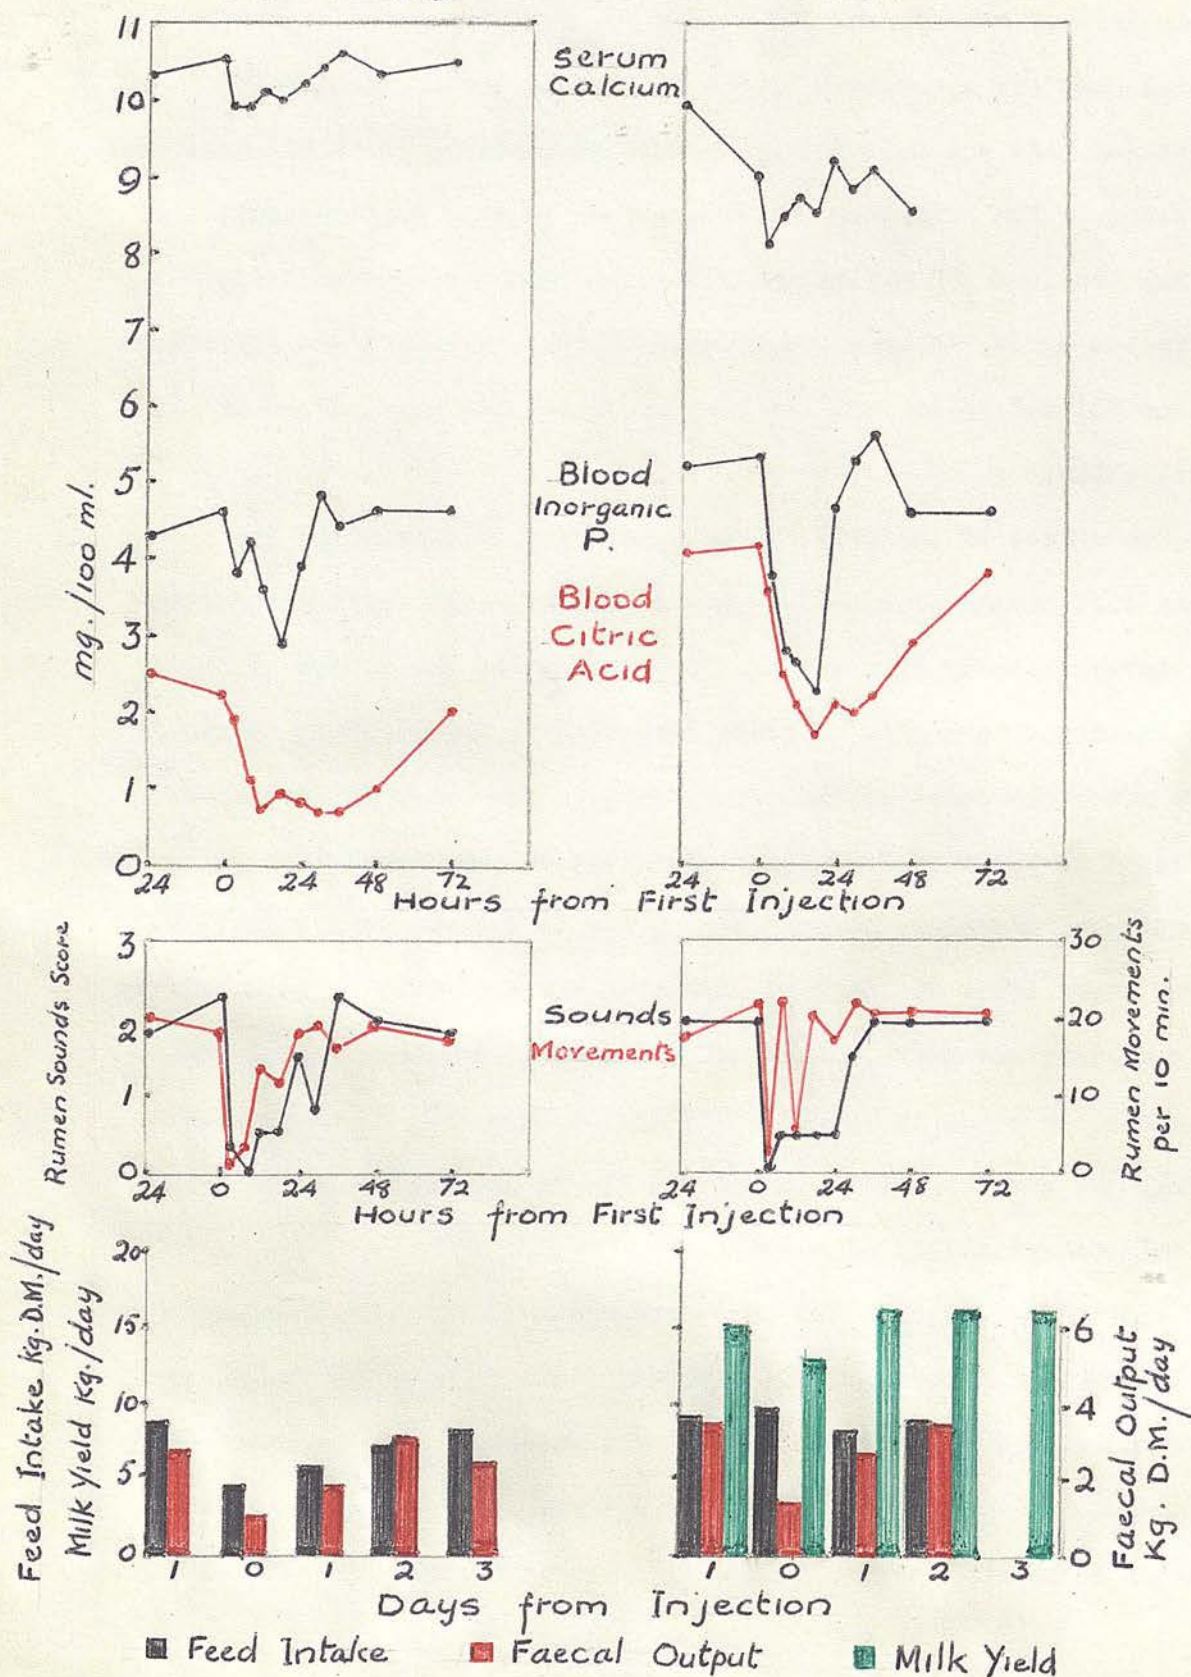 11
10
9
8
7
6
5
4
3
2
1
0
mg./100 ml.
Serum
Calcium
Blood
Inorganic
P.
Blood
Citric
Acid
24 0 24 48 72
24 0 24 48 72
Hours from First Injection
Rumen Sounds Score
3
2
1
0
Sounds
Movements
30
20
10
0
Rumen Movements
per 10 min.
24 0 24 48 72
24 0 24 48 72
Hours from First Injection
Feed Intake Kg. D.M./day
Milk Yield Kg./day
20
15
10
5
0
6
4
2
0
Faecal Output
Kg. D.M./day
1 0 1 2 3
1 0 1 2 3
Days from Injection
Feed Intake
Faecal Output
Milk Yield